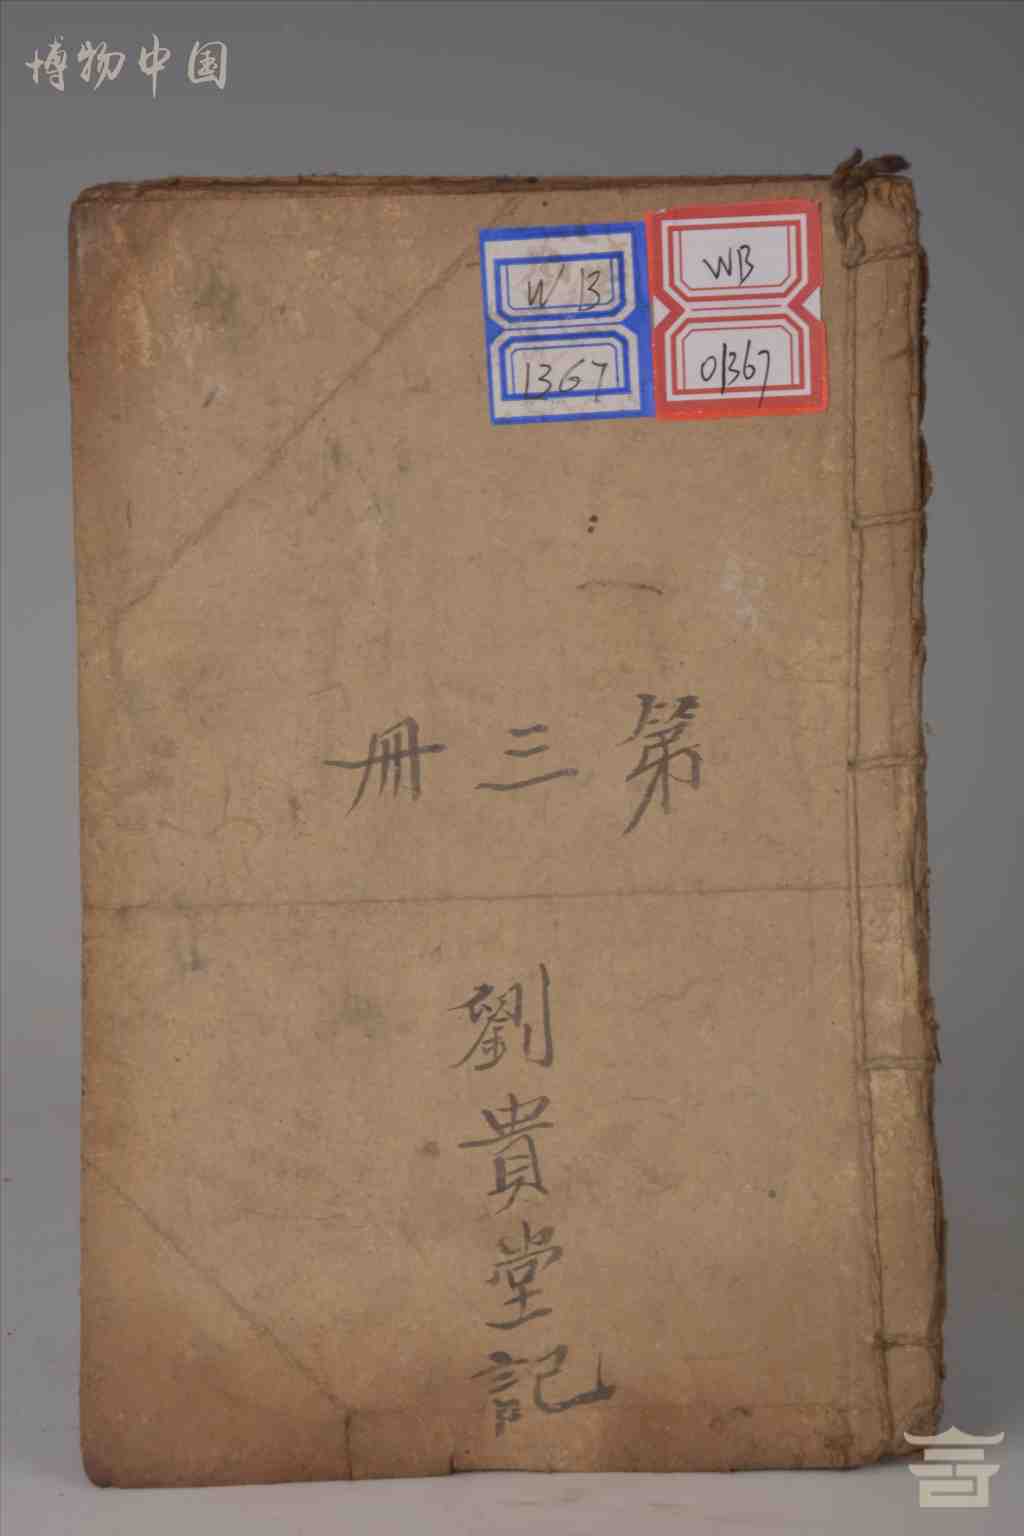 博物中国
W B
1367
WB
01367
第三冊
劉貴堂記